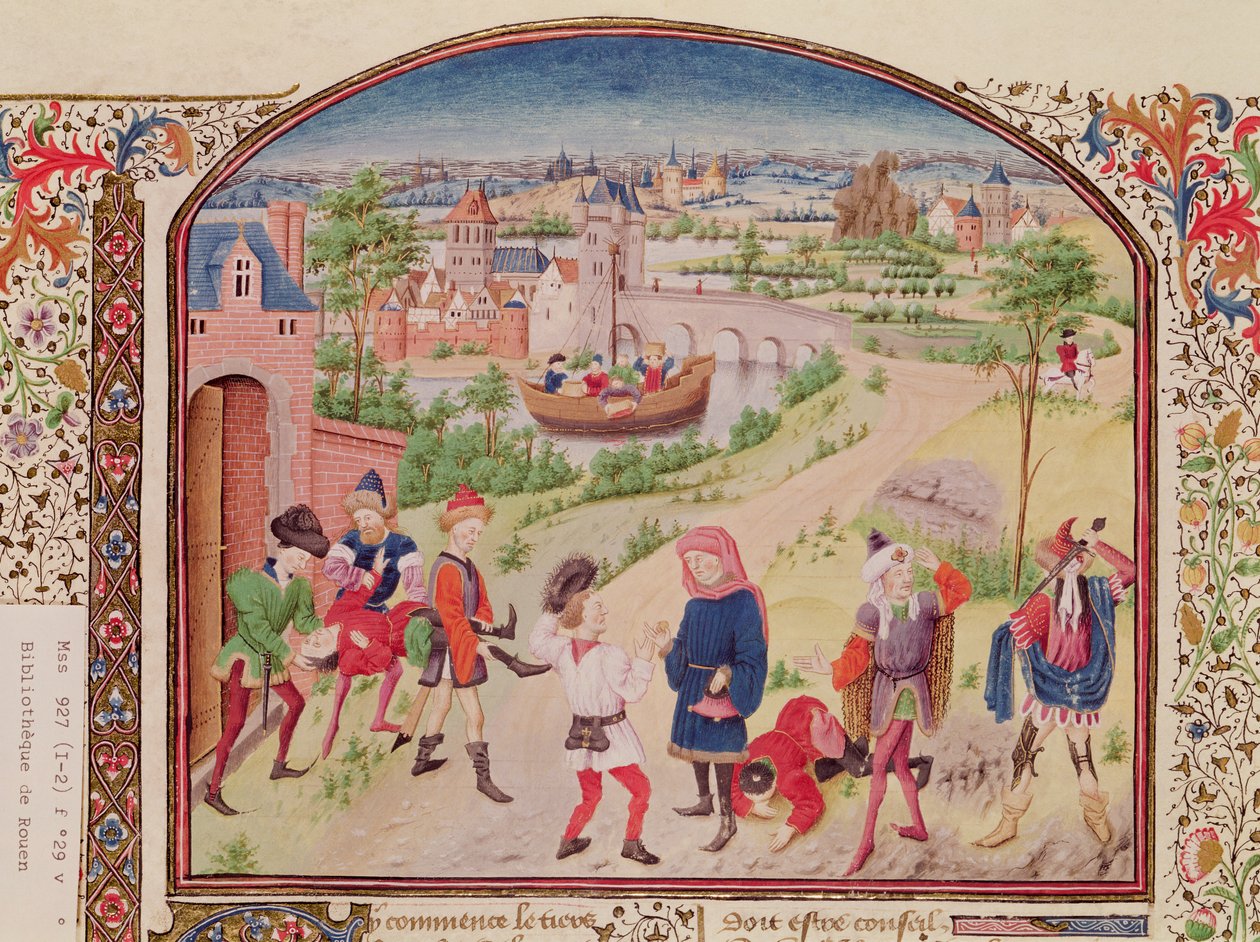 Mss 927 (I-2) f °29 v °
Bibliothèque de Rouen
y commence le tiers
doit estre conseil